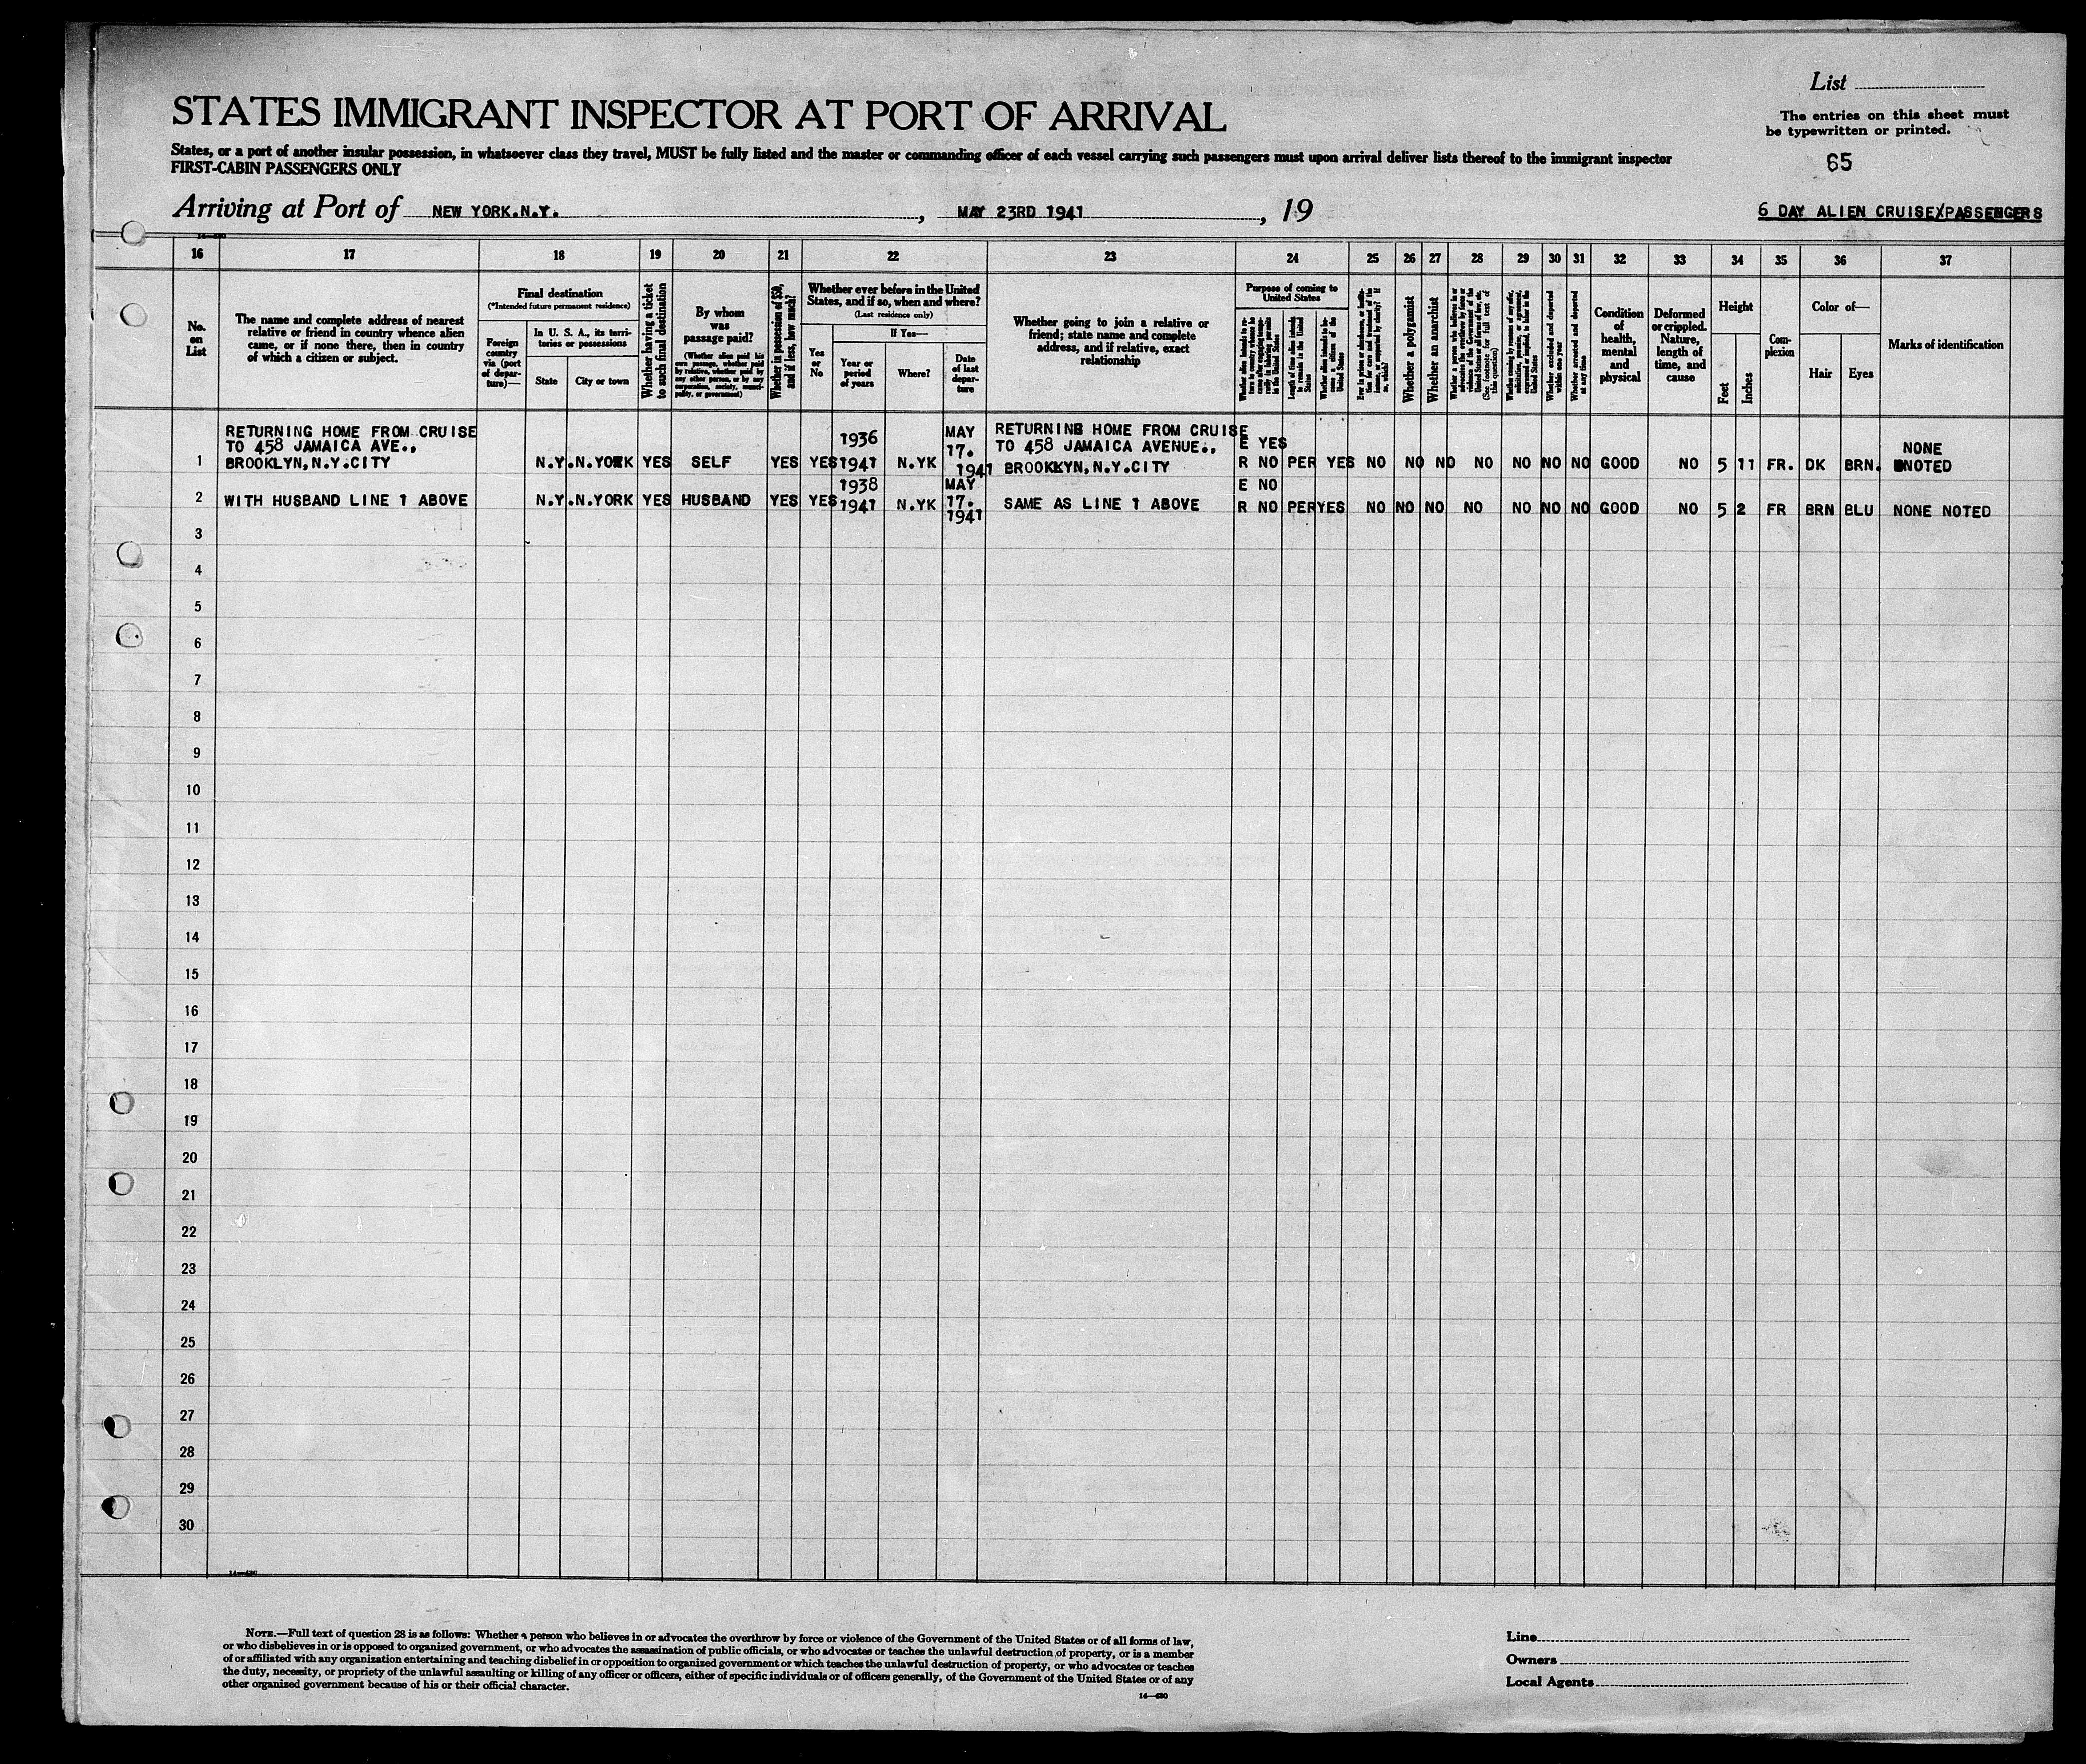 List
STATES IMMIGRANT INSPECTOR AT PORT OF ARRIVAL
The entries on this sheet must
be typewritten or printed.
States, or a port of another insular possession, in whatsoever class they travel, MUST be fully listed and the master or commanding officer of each vessel carrying such passengers must upon arrival deliver lists thereof to the immigrant inspector
FIRST-CABIN PASSENGERS ONLY
65
Arriving at Port of NEW YORK.N.Y. , MAY 23RD 1941 , 19
6 DAY ALIEN CRUISE/PASSENGERS
16 17 18 19 20 21 22 23 24 25 26 27 28 29 30 31 32 33 34 35 36 37
No.
on
List
The name and complete address of nearest
relative or friend in country whence alien
came, or if none there, then in country
of which a citizen or subject.
Final destination
(*Intended future permanent residence)
Foreign
country
via (port
of depar-
ture)—
In U. S. A., its terri-
tories or possessions
State
City or town
Whether having a ticket
to such final destination
By whom
was
passage paid?
(Whether alien paid his
own passage, whether paid
by relative, whether paid by
any other person, or by any
corporation, society, munici-
pality, or government)
Whether in possession of $50,
and if less, how much?
Whether ever before in the United
States, and if so, when and where?
(Last residence only)
Yes
or
No
If Yes—
Year or
period
of years
Where?
Date
of last
depar-
ture
Whether going to join a relative or
friend; state name and complete
address, and if relative, exact
relationship
Purpose of coming to
United States
Length of time alien intends
to remain in the United
States
Whether alien intends to be-
come a citizen of the
United States
Whether a polygamist
Whether an anarchist
(See footnote for full text of
this question)
Whether excluded and deported
within one year
Whether arrested and deported
at any time
Condition
of
health,
mental
and
physical
Deformed
or crippled.
Nature,
length of
time, and
cause
Height
Feet
Inches
Com-
plexion
Color of—
Hair
Eyes
Marks of identification
RETURNING HOME FROM CRUISE
TO 458 JAMAICA AVE.,
1 BROOKLYN,N.Y.CITY N.Y. N.YORK YES SELF YES YES 1936 1941 N.YK MAY 17. 1941
RETURNING HOME FROM CRUISE
TO 458 JAMAICA AVENUE.,
BROOKKYN,N.Y.CITY
E YES
R NO PER YES NO NO NO NO NO NO NO GOOD NO 5 11 FR. DK BRN. NONE NOTED
2 WITH HUSBAND LINE 1 ABOVE N.Y. N.YORK YES HUSBAND YES YES 1938 1941 N.YK MAY 17. 1941 SAME AS LINE 1 ABOVE
E NO
R NO PER YES NO NO NO NO NO NO NO GOOD NO 5 2 FR BRN BLU NONE NOTED
3
4
5
6
7
8
9
10
11
12
13
14
15
16
17
18
19
20
21
22
23
24
25
26
27
28
29
30
14—430
NOTE.—Full text of question 28 is as follows: Whether a person who believes in or advocates the overthrow by force or violence of the Government of the United States or of all forms of law,
or who disbelieves in or is opposed to organized government, or who advocates the assassination of public officials, or who advocates or teaches the unlawful destruction of property, or is a member
of or affiliated with any organization entertaining and teaching disbelief in or opposition to organized government or which teaches the unlawful destruction of property, or who advocates or teaches
the duty, necessity, or propriety of the unlawful assaulting or killing of any officer or officers, either of specific individuals or of officers generally, of the Government of the United States or of any
other organized government because of his or their official character.
14—430
Line
Owners
Local Agents